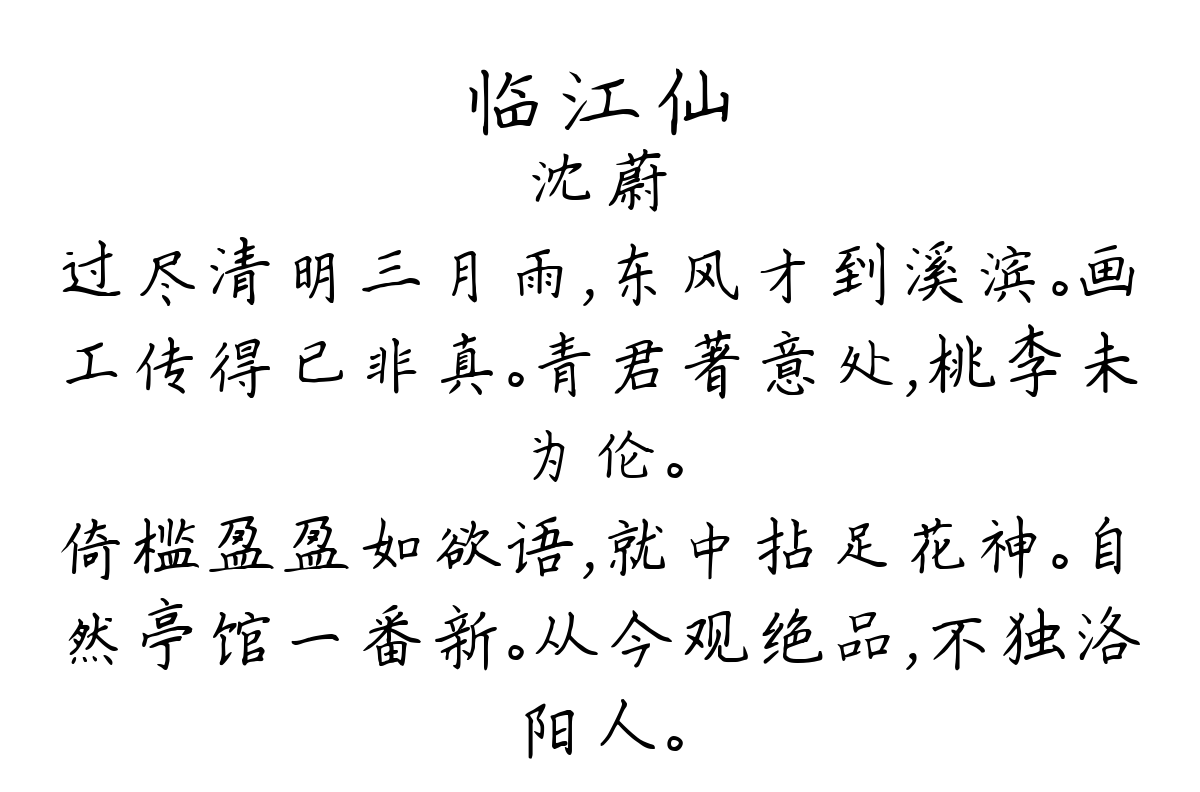 临江仙
沈蔚
过尽清明三月雨,东风才到溪滨。画
工传得已非真。青君著意处,桃李未
为伦。
倚槛盈盈如欲语,就中拈足花神。自
然亭馆一番新。从今观绝品,不独洛
阳人。